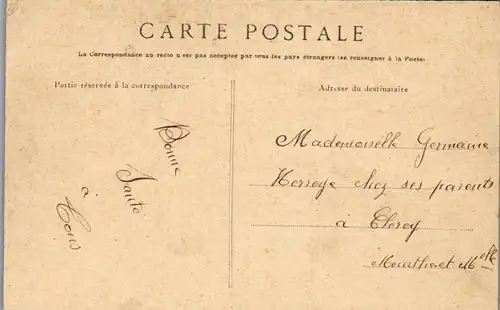 CARTE POSTALE
La Correspondance au recto n'est pas acceptée par tous les pays étrangers (se renseigner à la Poste)
Partie réservée à la correspondance
Adresse du destinataire
Bonne
Santé
à
Tous
Mademoiselle Germaine
chez ses parents
à Clerey
Meurthe et Mlle